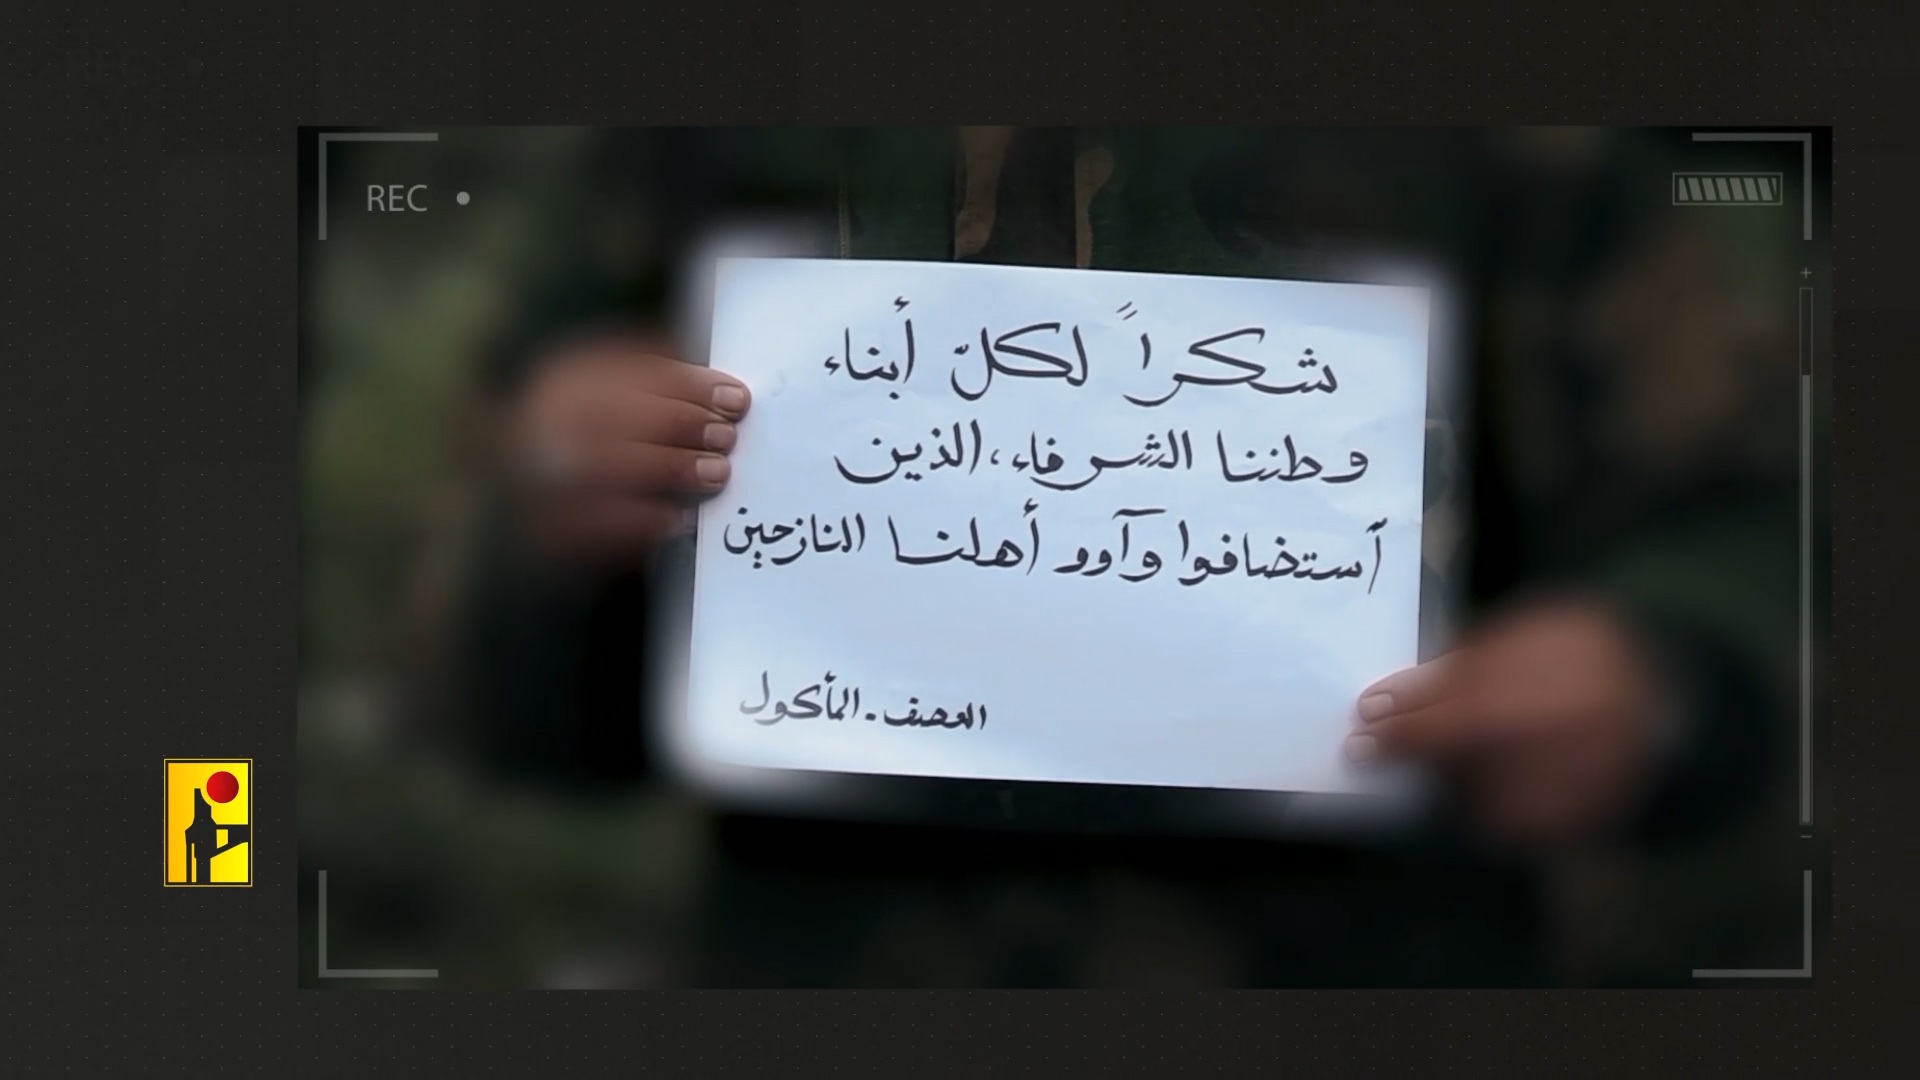 REC
شكراً لكلّ أبناء
وطننا الشرفاء، الذين
أستضافوا وآوو أهلنا النازحين
العصف-المأكول